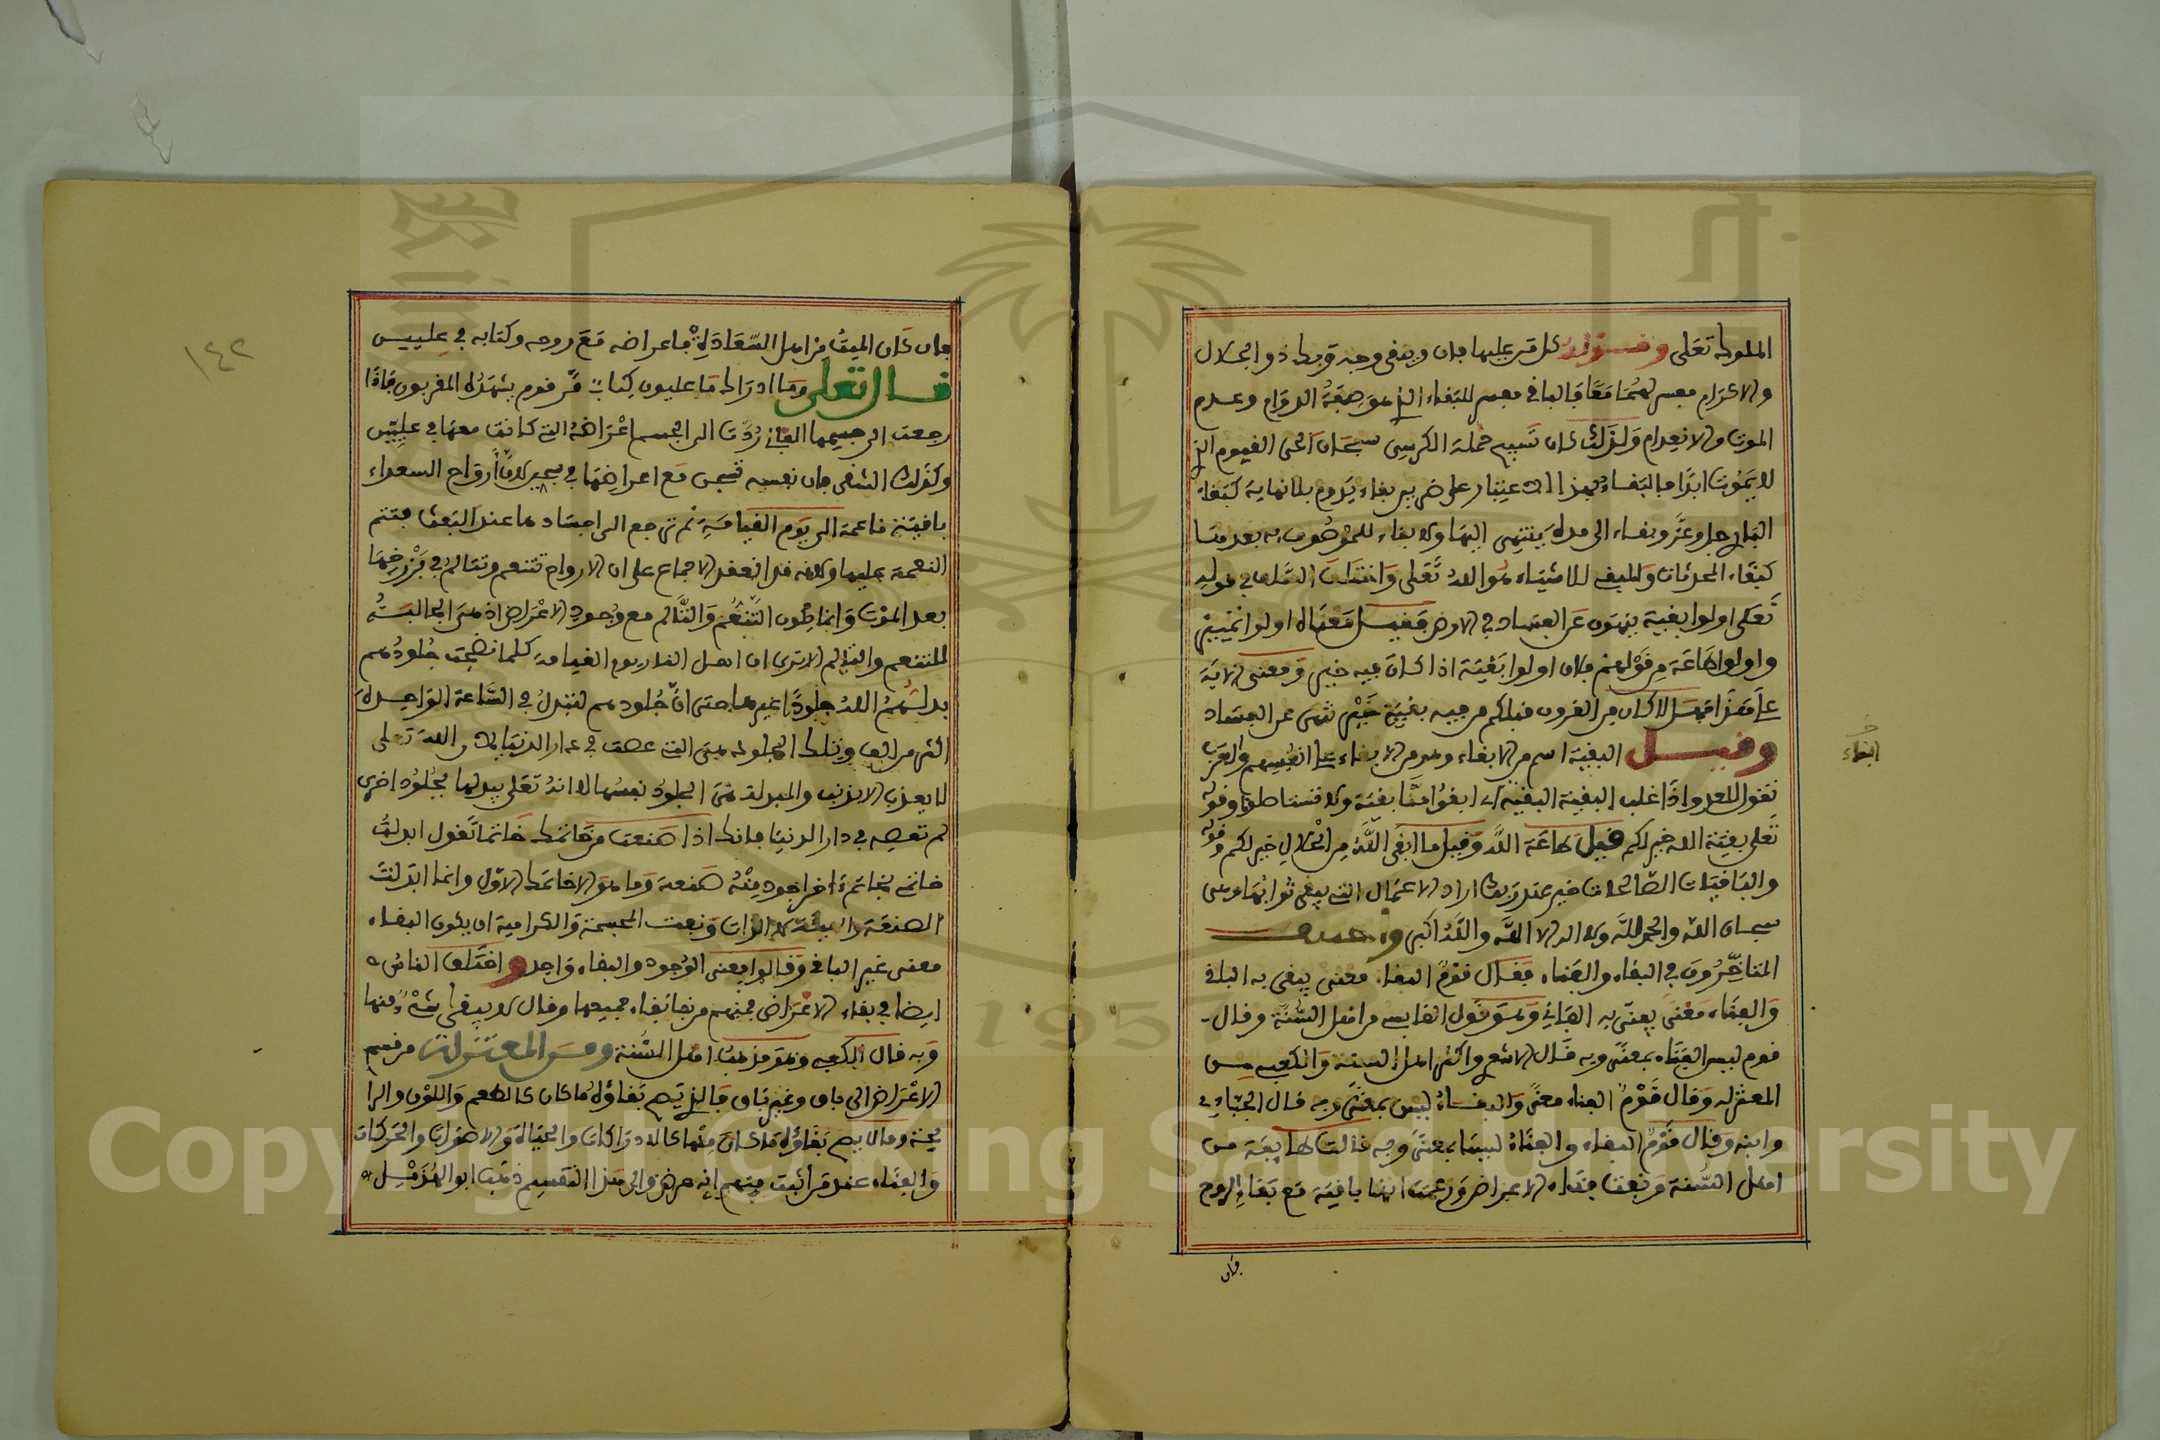 الملوك تعلى وقوله كل من عليها فان ويبقى وجه ربك ذوا الجلال
والاكرام معسر لهما معا فالباقي مفسر للبقاء الذي هو صفة الدوام وعدم
الموت والانعدام ولذلك كان تسبيح حملة الكرسي سبحان الحي القيوم الذي
لا يموت ابدا فالبقاء بهذا الاعتبار على ضربين بقاء يدوم بلا نهاية كبقاء
البارئ جل وعز وبقاء الى مدة ينتهي اليها ولا بقاء للموصوف به بعدها
كبقاء المحدثات والمبقي للاشياء هو الله تعلى واختلف الناس في قوله
تعلى اولوا بقية ينهون عن الفساد في الارض فقيل معناه اولوا تمييز
واولوا طاعة من قولهم فلان اولوا بقية اذا كان فيه خير ومعنى الاية
على هذا فهل لا كان من القرون قبلكم من فيه بقية خير تنهى عن الفساد
وقيل البقية اسم من الابقاء وهو من الابقاء على انفسهم والعرب
تقول للعدو اذا غلب البقية البقية اي ابقوا منا بقية ولا تستاصلونا وقوله
تعلى بقية الله خير لكم قيل طاعة الله وقيل ما ابقى الله من الحلال خير لكم وقوله
والباقيات الصالحات خير عند ربك اراد الاعمال التي يبقى ثوابها وهي
سبحان الله والحمد لله ولا اله الا الله والله اكبر واختلف
المتاخرون في البقاء والفناء فقال قوم البقاء معنى يبقى به الباقي
والفناء معنى يفنى به الفاني وهو قول القلانسي من اهل السنة وقال
قوم ليس الفناء بمعنى وبه قال الاشعري واكثر اهل السنة والكعبي من
المعتزله وقال قوم الفناء معنى والبقاء ليس بمعنى وبه قال الجبائي
وابنه وقال قوم البقاء والفناء ليسا بمعنى وبه قالت طايفة من
اهل السنة ونفت فناء الاعراض وزعمت انها باقية مع بقاء الروح
فان
البقاء
١٤٢
فان كان الميت من اهل السعادة فاعراضه مع روحه وكتابه في عليين
قال تعلى وما ادراك ما عليون كتاب مرقوم يشهده المقربون فاذا
رجعت الى جسمها الفاني ردت الى الجسم اعراضه التي كانت معها في عليين
وكذلك الشقي فان نفسه تسجن مع اعراضها في سجين لان ارواح السعداء
باقية ناعمة الى يوم القيامة ثم ترجع الى اجسادها عند البعث فتتم
النعمة عليها ولانه قد انعقد الاجماع على ان الارواح تتنعم وتتالم في برزخها
بعد الموت وانما يكون التنعم والتالم مع وجود الاعراض اذ هي الجالبة
للتنعم والتالم الا ترى ان اهل النار يوم القيامة كلما نضجت جلودهم
بدلهم الله جلودا غيرها حتى ان جلودهم لتبدل في الساعة الواحدة
اكثر من الف وتلك الجلود هي التي عصت في دار الدنيا لان الله تعلى
لا يعذب الا مذنب والمبدلة هي الجلود نفسها لا انه تعلى يبدلها بجلود اخرى
لم تعصه في دار الدنيا فانك اذا صنعت من خاتمك خاتما تقول ابدلت
خاتمي بخاتم اخر اجود منه صنعة وما هو الا خاتمك الاول وانما ابدلت
الصنعة والهيئة لا الذات ونفت المجسمة والكرامية ان يكون البقاء
معنى غير الباقي وقالوا معنى الوجود والبقاء واحد واختلف الناس
ايضا في بقاء الاعراض فمنهم من نفا بقاء جميعها وقال لا يبقى شيء منها
وبه قال الكعبي وهو مذهب اهل السنة ومن المعتزلة من قسم
الاعراض الى باق وغير باق فالذي يصح بقاؤه ما كان كالطعم واللون والرا
يحة وما لا يصح بقاؤه ما كان منها كالادراكات والحياة والاصوات والحركات
والفناء عند من اثبت منهم انه عرض والى هذا التقسيم ذهب ابو الهذيل